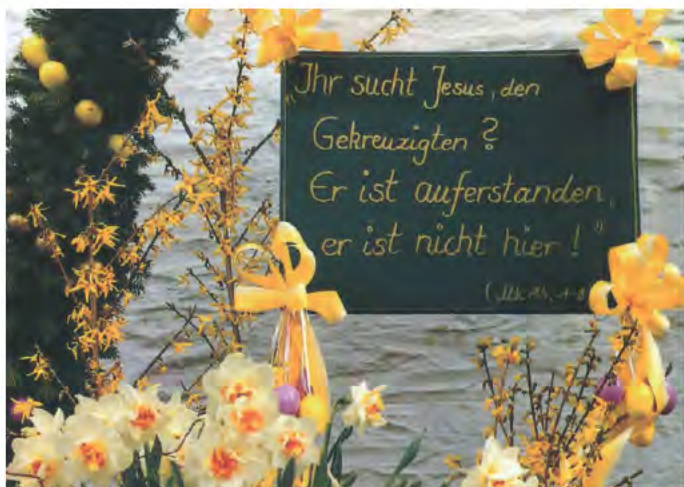 „Ihr sucht Jesus, den
Gekreuzigten?
Er ist auferstanden,
er ist nicht hier!"